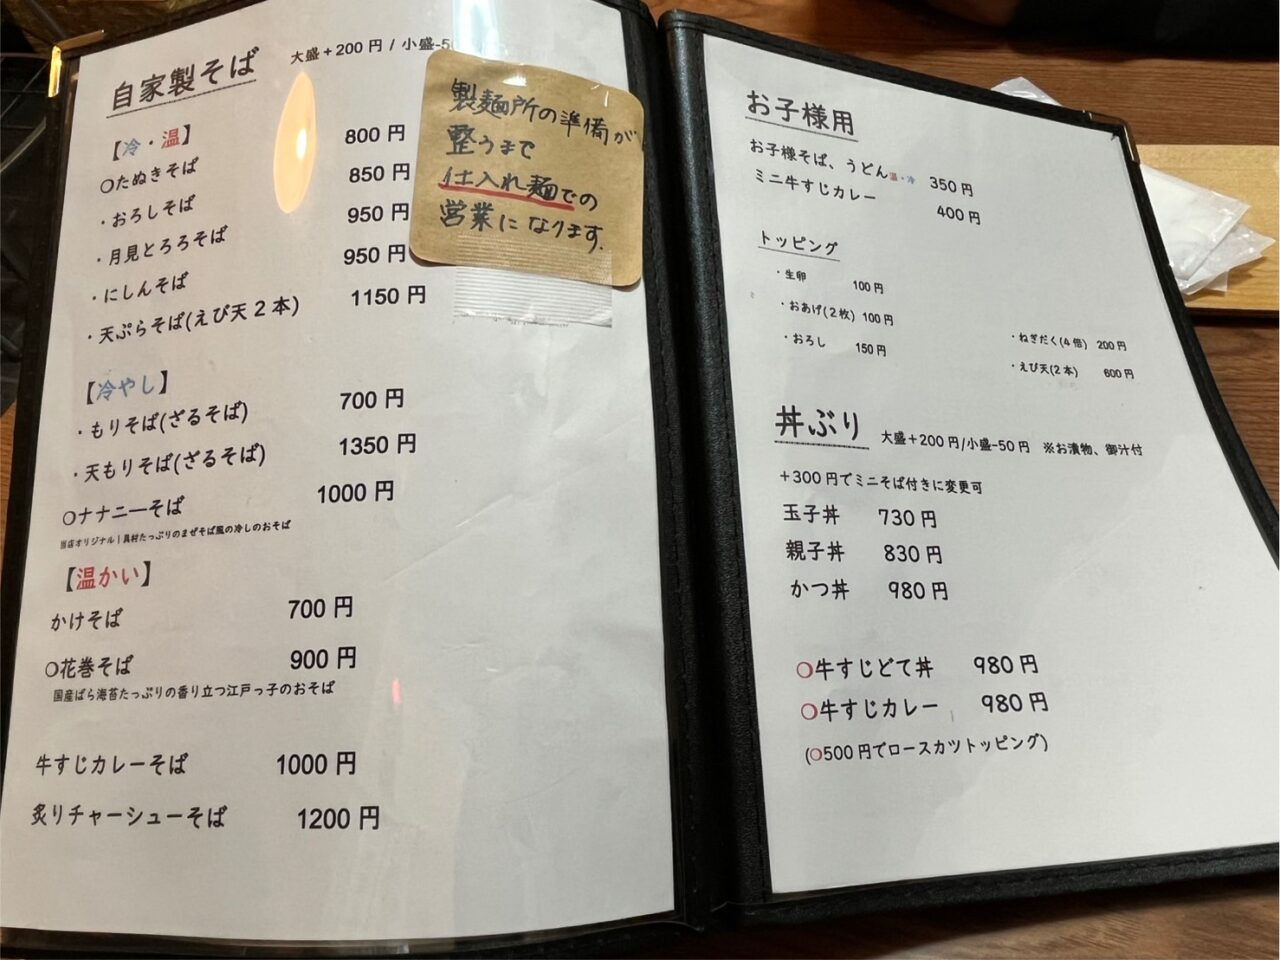 自家製そば 大盛+200円/小盛-5
【冷・温】
〇たぬきそば 800円
・おろしそば 850円
・月見とろろそば 950円
・にしんそば 950円
・天ぷらそば(えび天2本) 1150円
製麺所の準備が
整うまで
仕入れ麺での
営業になります.
【冷やし】
・もりそば(ざるそば) 700円
・天もりそば(ざるそば) 1350円
〇ナナニーそば 1000円
当店オリジナル!具材たっぷりのまぜそば風の冷しのおそば
【温かい】
かけそば 700円
〇花巻そば 900円
国産ばら海苔たっぷりの香り立つ江戸っ子のおそば
牛すじカレーそば 1000円
炙りチャーシューそば 1200円
お子様用
お子様そば、うどん温・冷 350円
ミニ牛すじカレー 400円
トッピング
・生卵 100円
・おあげ(2枚) 100円
・おろし 150円
・ねぎだく(4倍) 200円
・えび天(2本) 600円
丼ぶり 大盛+200円/小盛-50円 ※お漬物、御汁付
+300円でミニそば付きに変更可
玉子丼 730円
親子丼 830円
かつ丼 980円
〇牛すじどて丼 980円
〇牛すじカレー 980円
(〇500円でロースカツトッピング)